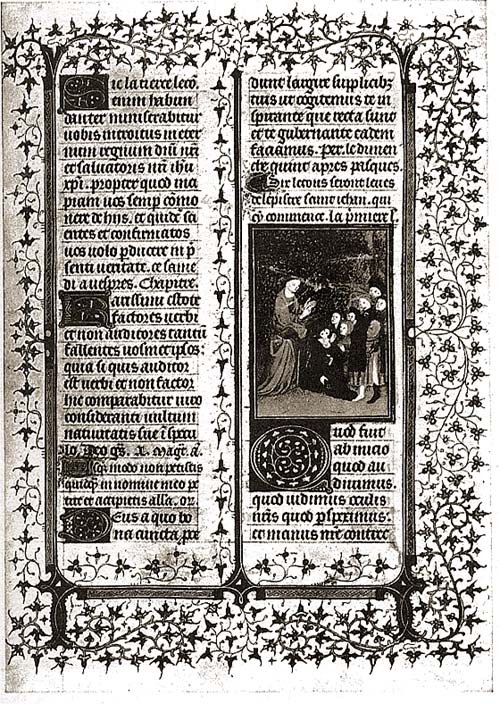 Sic la tierce leco
enim habun
danter ministrabitur
uobis introitus in eter
num regnum dñi nr̃i
et saluatoris nr̃i ihu
xpi. propter quod inci
piam uos semp cōmo
nere de hiis. et quidē sci
entes et confirmatos
uos uolo pducere in p̄
senti ueritate. ce same
di a uespres. Chapitre.
Karissimi estote
factores uerbi
et non auditores tantū
fallentes uosmetipsos:
quia si quis auditor
est uerbi et non factor
hic comparabitur uiro
consideranti uultum
natiuitatis sue ī specu
lo. Deo gr̃s. Magr̃. ā.
Usq̄ modo non petistis
quicq̄ in nomine meo pe
tite et accipietis alla. or̄.
Deus a quo bo
na cuncta pro
dunt largire supplicibꝫ
tuis ut cogitemus te in
spirante que recta sunt
et te gubernante eadem
faciamus. Per. le dimen
che quint apres pasques.
Six lecons seront leues
de lepistre saint iehan. qui
cy commence. la p̄miere l.
Quod fuit
ab inicio
quod au
diuimus.
quod uidimus oculis
nr̃is quod pspeximus.
et manus nr̃e contrec